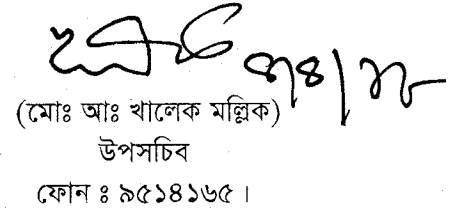 (মোঃ আঃ খালেক মল্লিক)
উপসচিব
ফোন ঃ ৯৫১৪১৬৫ ।